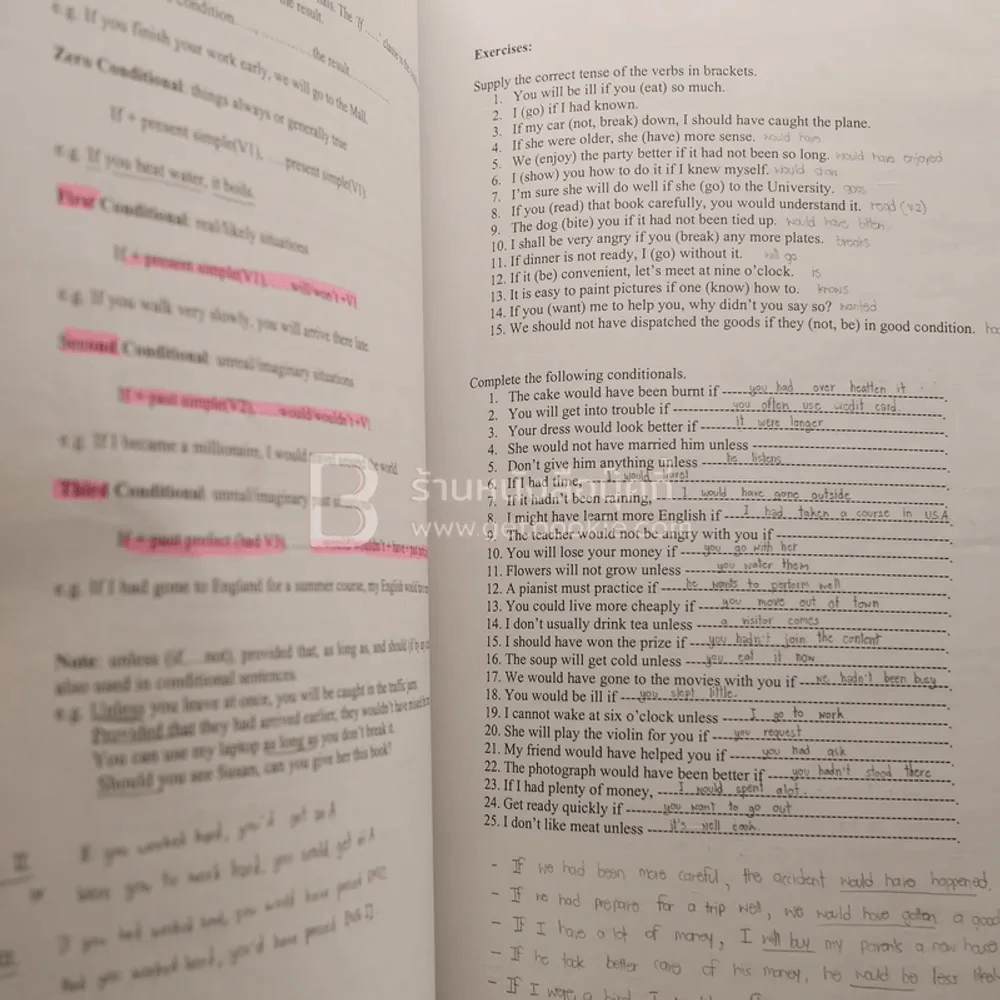 e.g. If you finish your work early, we will go to the Mall.
Zero Conditional: things always or generally true
If + present simple(V1), ....present simple(V1).
e.g. If you heat water, it boils.
First Conditional: real/likely situations
If + present simple(V1), ....will/won't+V1
e.g. If you walk very slowly, you will arrive there late.
Second Conditional: unreal/imaginary situations
If + past simple(V2), ....would/wouldn't+V1
e.g. If I became a millionaire, I would the world.
Third Conditional: unreal/imaginary past
If + past perfect (had V3)
e.g. If I had gone to England for a summer course, my English would
Note: unless (if....not), provided that, as long as, and should (if by
also used in conditional sentences.
e.g. Unless you leave at once, you will be caught in the traffic jam.
Provided that they had arrived earlier, they wouldn't have
You can use my laptop as long as you don't break it.
Should you see Susan, can you give her this book?
Exercises:
Supply the correct tense of the verbs in brackets.
1. You will be ill if you (eat) so much.
2. I (go) if I had known.
3. If my car (not, break) down, I should have caught the plane.
4. If she were older, she (have) more sense. would have
5. We (enjoy) the party better if it had not been so long. would have enjoyed
6. I (show) you how to do it if I knew myself. would show
7. I'm sure she will do well if she (go) to the University. goes
8. If you (read) that book carefully, you would understand it. read (v.2)
9. The dog (bite) you if it had not been tied up. would have bitten
10. I shall be very angry if you (break) any more plates. breaks
11. If dinner is not ready, I (go) without it. will go
12. If it (be) convenient, let's meet at nine o'clock. is
13. It is easy to paint pictures if one (know) how to. knows
14. If you (want) me to help you, why didn't you say so? wanted
15. We should not have dispatched the goods if they (not, be) in good condition.
Complete the following conditionals.
1. The cake would have been burnt if you had over heatten it.
2. You will get into trouble if you often use credit card.
3. Your dress would look better if it were longer.
4. She would not have married him unless
5. Don't give him anything unless he listens.
6. If I had time, I would travel
7. If it hadn't been raining, I would have gone outside.
8. I might have learnt more English if I had taken a course in USA.
9. The teacher would not be angry with you if
10. You will lose your money if you go with her.
11. Flowers will not grow unless you water them.
12. A pianist must practice if he wants to perform well.
13. You could live more cheaply if you move out of town.
14. I don't usually drink tea unless a visitor comes.
15. I should have won the prize if you hadn't join the content.
16. The soup will get cold unless you eat it now.
17. We would have gone to the movies with you if we hadn't been busy.
18. You would be ill if you slept little.
19. I cannot wake at six o'clock unless I go to work.
20. She will play the violin for you if you request.
21. My friend would have helped you if you had ask.
22. The photograph would have been better if you hadn't stood there.
23. If I had plenty of money, I would spent alot.
24. Get ready quickly if you want to go out.
25. I don't like meat unless it's well cook.
- If we had been more careful, the accident would have happened.
- If we had prepare for a trip well, we would have gotten a good
- If I have a lot of money, I will buy my parents a new house
- If he took better care of his money, he would be less likely
- If I were a bird, I
B ร้านหนังสือเก็ทบุ๊คกี้
www.getbookie.com